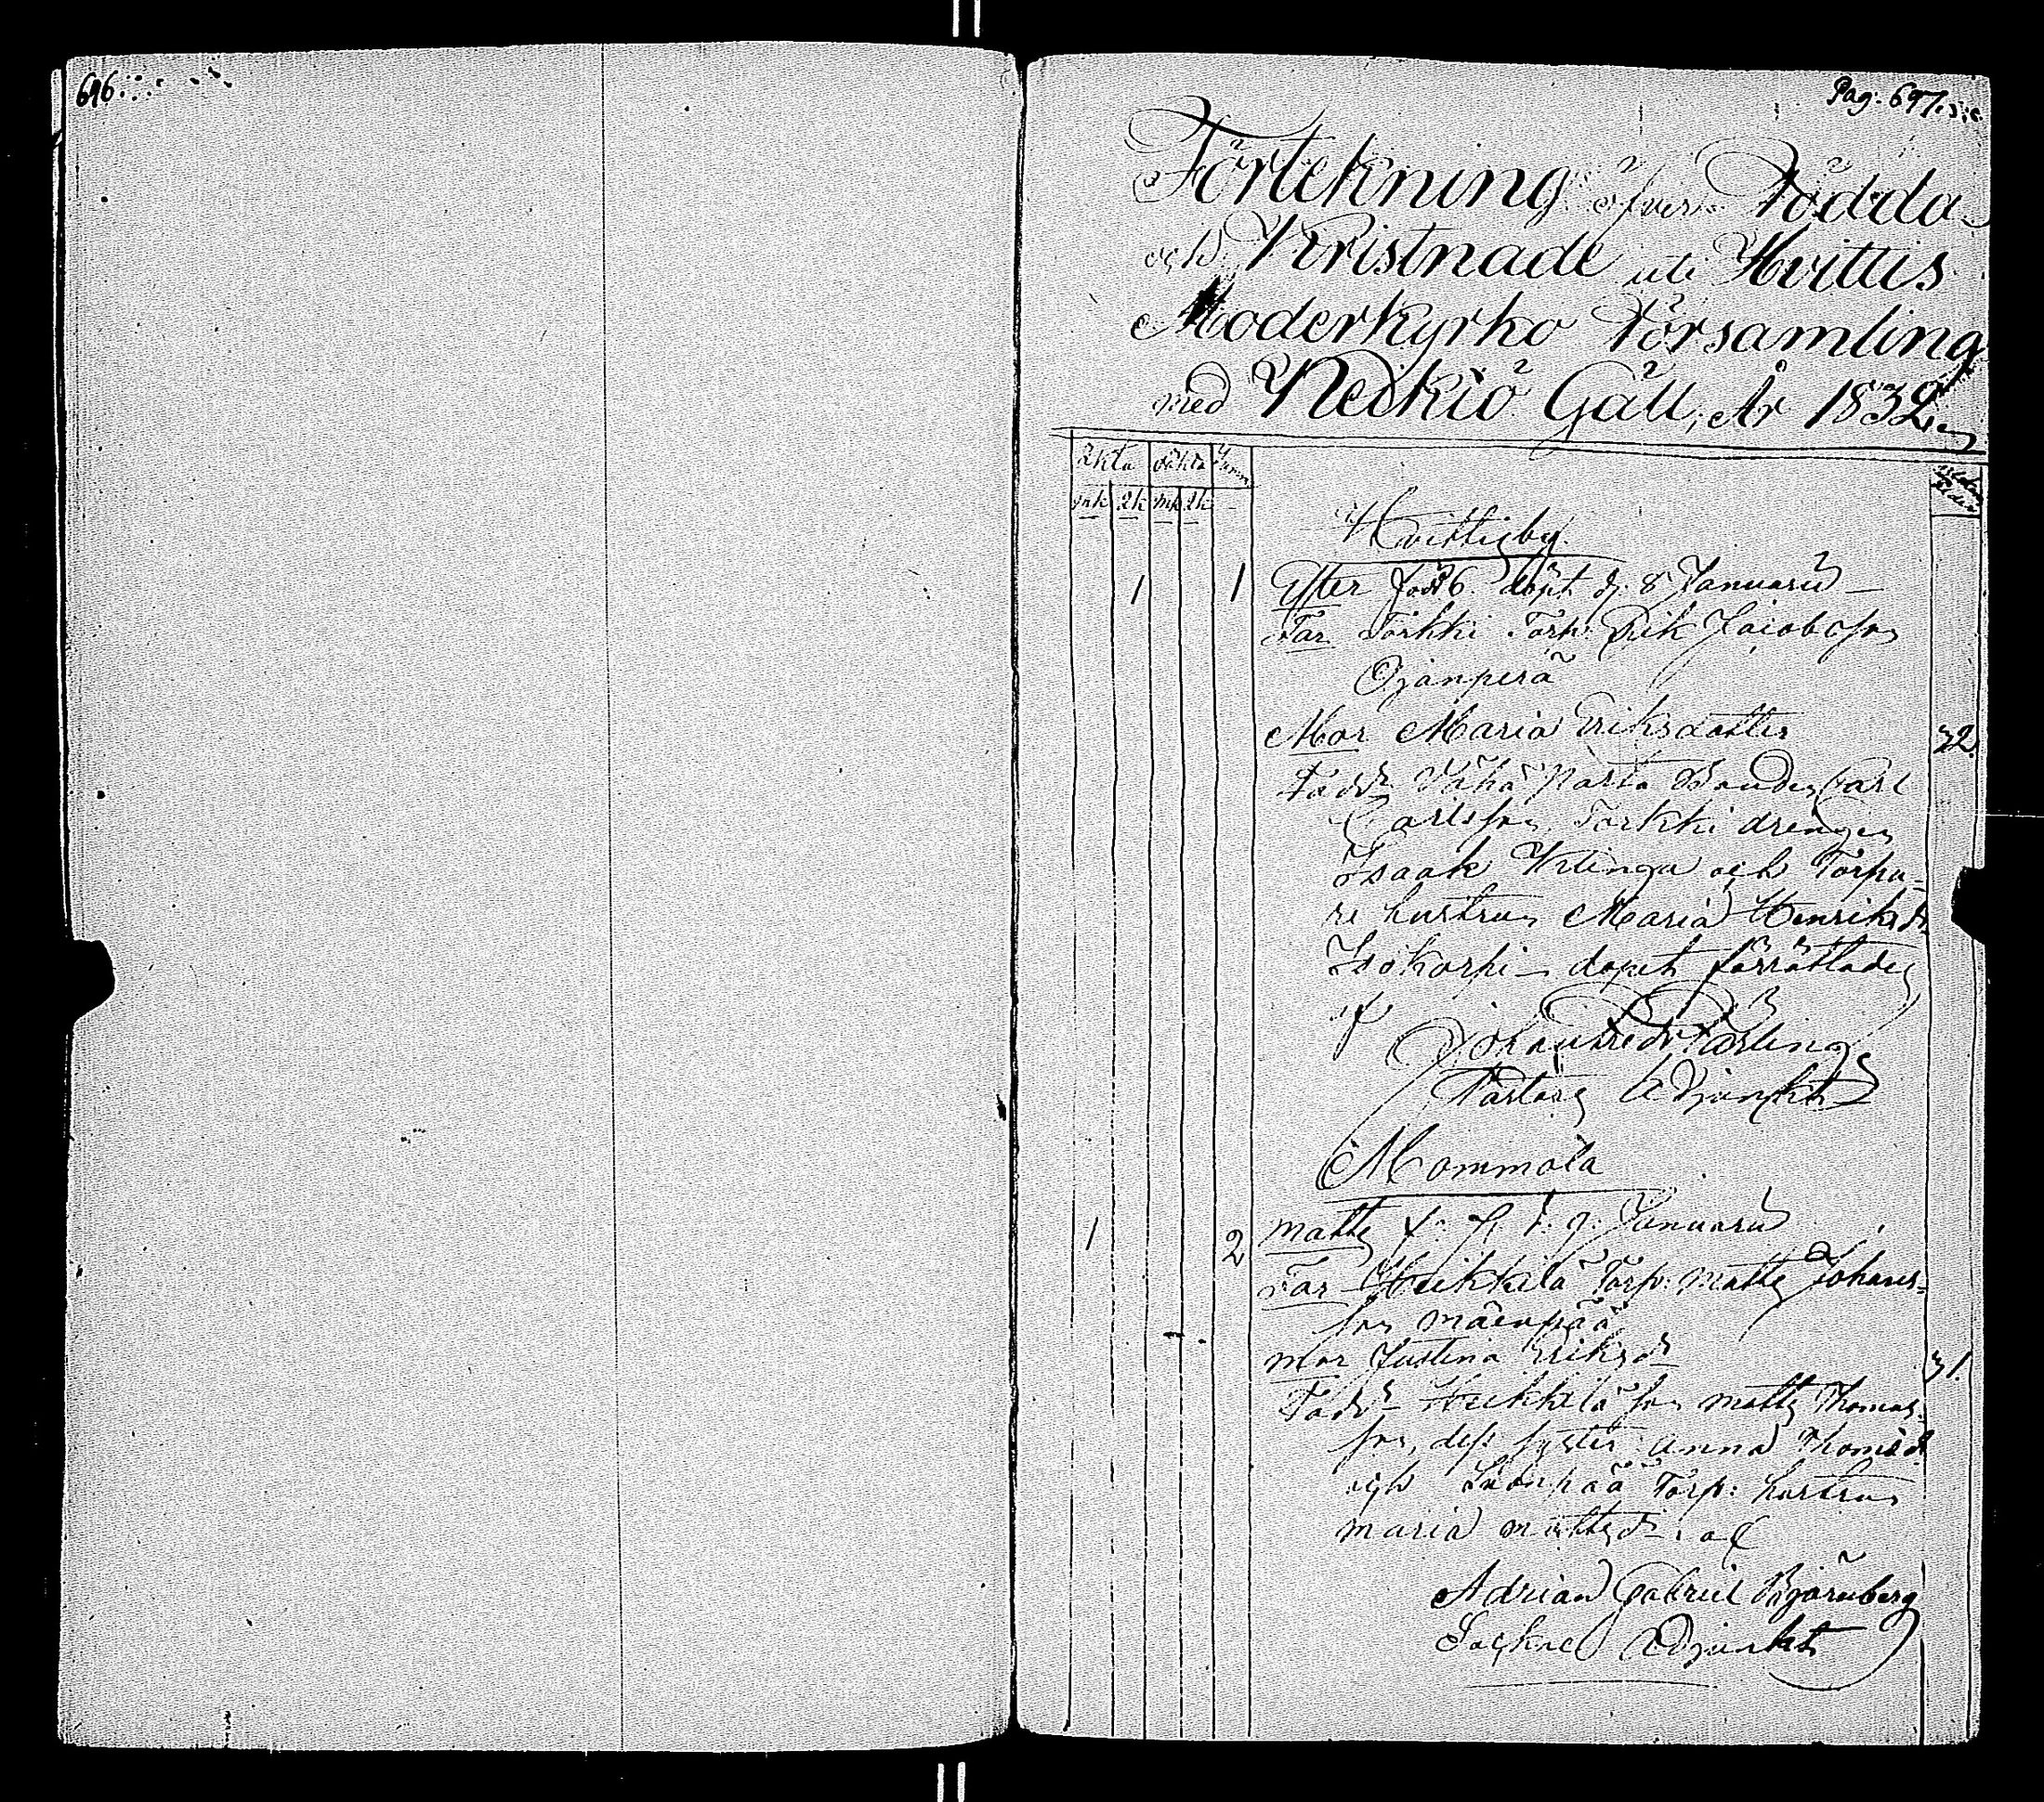 696.
Pag. 697.
Förtekning öfver Födda
och Kristnade uti Hvittis
Moderkyrko Församling
med Keikiö Gäll, År 1832
äkta oäkta Sum
mk qk mk qk
Hvittisby
Ester född 6. döpt d. 8 Januarii
Far Torkki Torp. Erik Jacobsson
Ojanperä
Mor Maria Eriksdotter 32
Fadd. Vähä Bonden Carl
Carlsson, Torkki drengen
Isaak och Torpa-
re hustrun Maria Henriksdr
Isokorpi – dopet förrättades
af
Johan Fredr.
Pastors Adjunkt
Mommola
1 2 Matts f. 7. d. 9. Januarii
Far Heikkilä Torp. Matts Johans-
son Mäenpää
Mor Justina Eriksdr 31.
Fadd. Heikkilä son Matts Thomas-
son, dess syster Anna Thomasdr
och Torp. hustrun
Maria Mattsdr. af
Adrian Gabriel Björnberg
Sockne Adjunkt